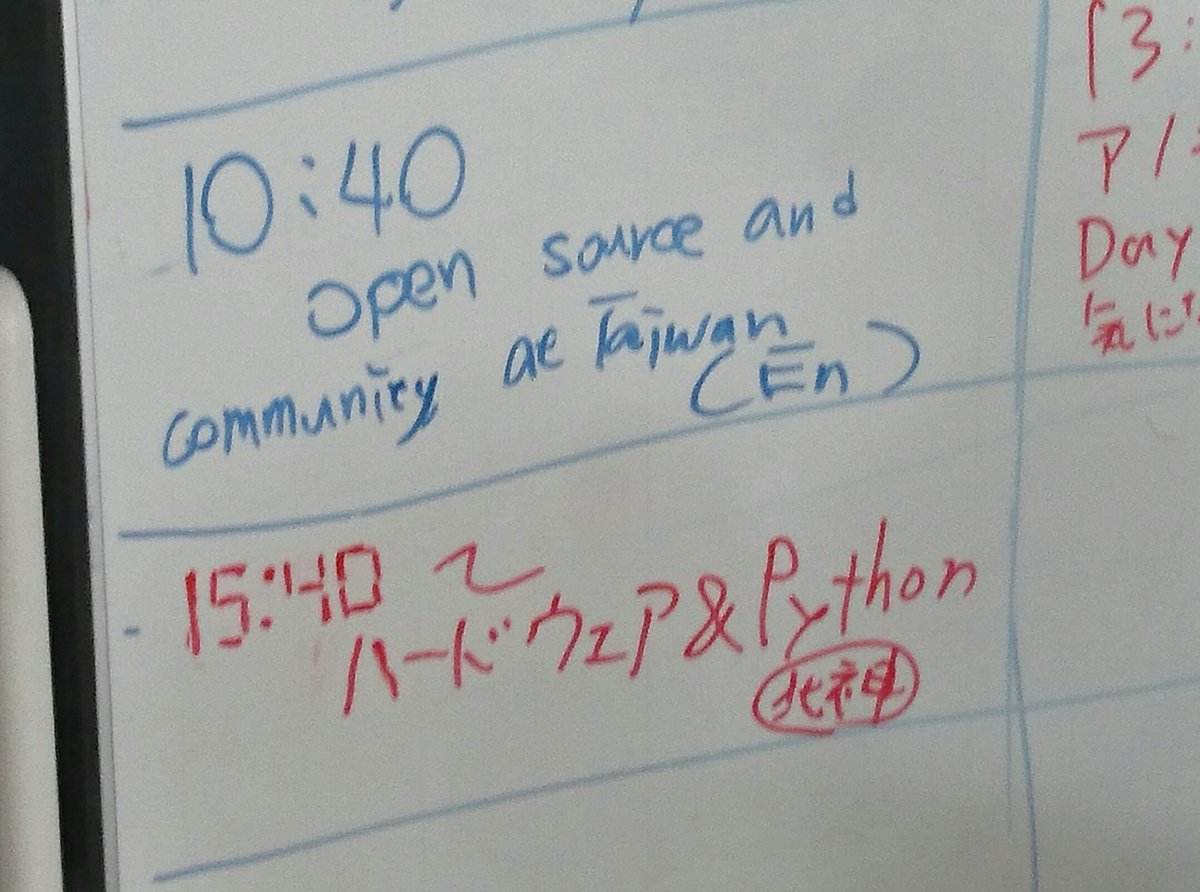 10:40
open source and
community at Taiwan
(En)
15:40〜
ハードウェア&Python
北神
13:
Day
気に